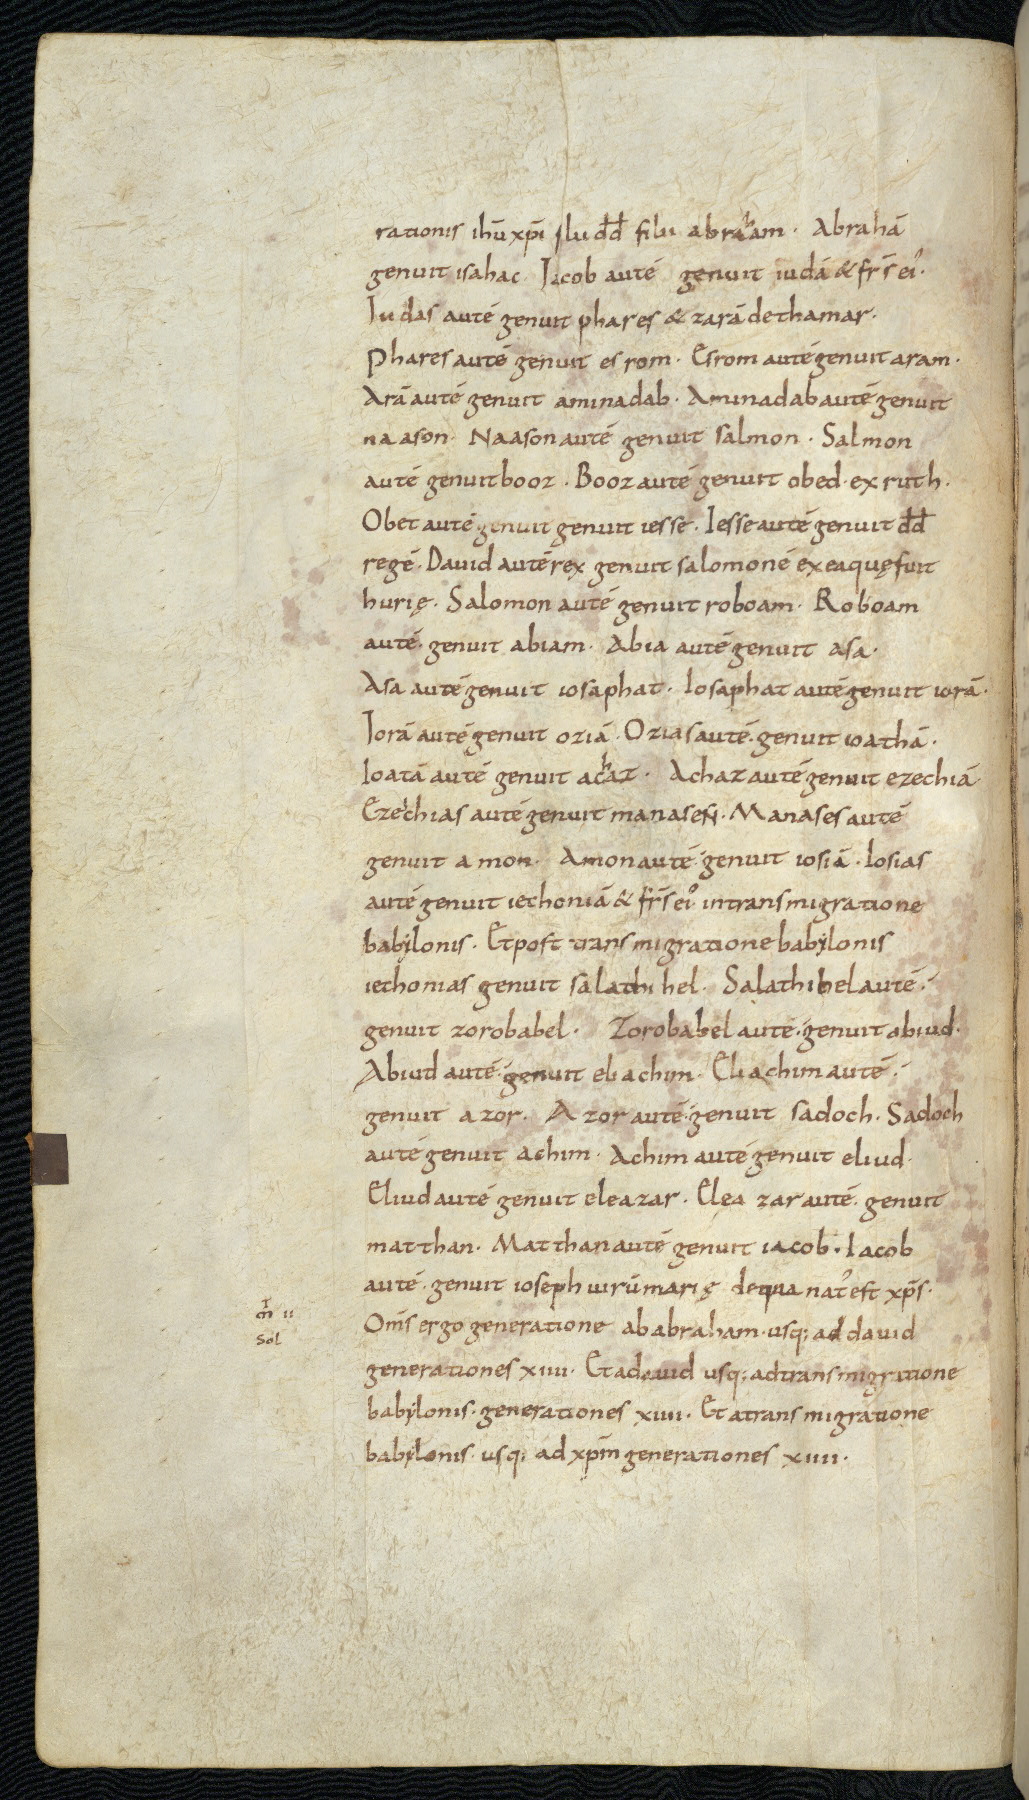 rationis ihū xp̄i filii dd̄ filii abraham · Abrahā
genuit isahac Iacob autē genuit iudā & fr̄s ei᾽·
Iudas autē genuit phares & zarā dethamar·
Phares autē genuit esrom · Esrom autē genuit aram·
Arā autē genuit aminadab · Aminadab autē genuit
naason· Naason autē genuit salmon · Salmon
autē genuit booz · Booz autē genuit obed · ex ruth·
Obet autē genuit genuit iesse · Iesse autē genuit dd̄
regē · Dauid autē rex genuit salomonē ex ea quę fuit
hurię · Salomon autē genuit roboam· Roboam
autē· genuit abiam· Abia autē genuit asa·
Asa autē genuit iosaphat· Iosaphat autē genuit iorā·
Iorā autē genuit oziā · Ozias autē· genuit ioathā·
Ioatā autē genuit achaz · Achaz autē genuit ezechiā
Ezechias autē genuit manaseN· Manases autē
genuit amon· Amon autē· genuit iosiā · Iosias
autē genuit iechoniā & fr̄s ei᾽ intransmigratione
babylonis · Et post transmigratione babylonis
iechonias genuit salathihel· Salathihel autē·
genuit zorobabel · Zorobabel autē· genuit abiud·
Abiud autē· genuit eliachim· Eliachim autē·
genuit azor· Azor autē· genuit sadoch· Sadoch
autē genuit achim · Achim autē genuit eliud·
Eliud autē genuit eleazar · Eleazar autē· genuit
matthan· Matthan autē genuit iacob· Iacob
autē· genuit ioseph uirū marię dequa nat᾽ est xp̄s·
Om̄s ergo generatione ababraham· usq; ad dauid
generationes xiiii· Et adauid usq; ad transmigritione
babylonis· generationes xiiii· Et atransmigratione
babylonis· usq; ad xp̄m generationes xiiii·
ii
Sol